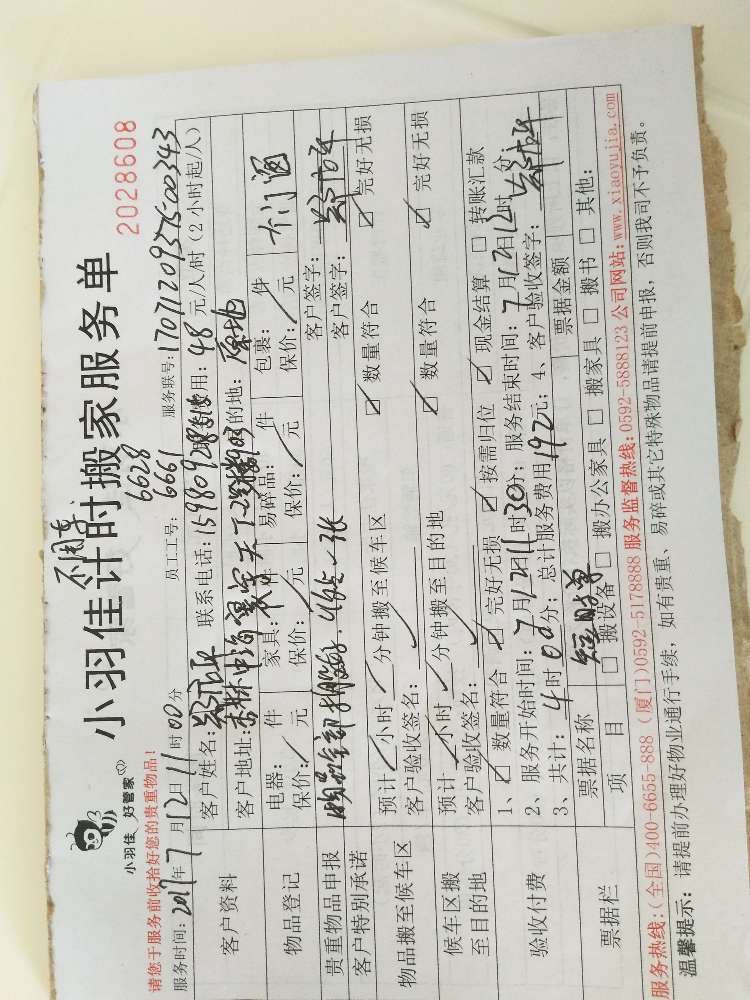 2028608
小羽佳计时搬家服务单
小羽佳 好管家
6628
请您于服务前收拾好您的贵重物品!
6661
服务时间:2017年7月12日11时00分 员工工号: 服务联号:1707120937500343
客户资料
客户姓名: 联系电话:159809 费用:48元/人/时(2小时起/人)
客户地址: 目的地:原地
物品登记
电器:/件 家具:/件 易碎品:/件 包裹:/件
保价:/元 保价:/元 保价:/元 保价:/元
贵重物品申报 客户签字:
客户特别承诺 客户签字:
物品搬至候车区
预计/小时/分钟搬至候车区 ☑数量符合 ☑完好无损
客户验收签名:
候车区搬至目的地
预计/小时/分钟搬至目的地 ☑数量符合 ☑完好无损
客户验收签名:
验收付费
1、☑数量符合 ☑完好无损 ☑按需归位 ☑现金结算 □转账汇款
2、服务开始时间:7月12日11时30分;服务结束时间:7月12日 时 分;
3、共计:4时00分;总计服务费用192元;4、客户验收签字:
票据栏
票据名称 短时单 票据金额
项目 □搬设备 □搬办公家具 □搬家具 □搬书 □其他:
服务热线:(全国)400-6655-888 (厦门)0592-5178888 服务监督热线:0592-5888123 公司网站:www.xiaoyujia.com
温馨提示: 请提前办理好物业通行手续,如有贵重、易碎或其它特殊物品请提前申报,否则我司不予负责。